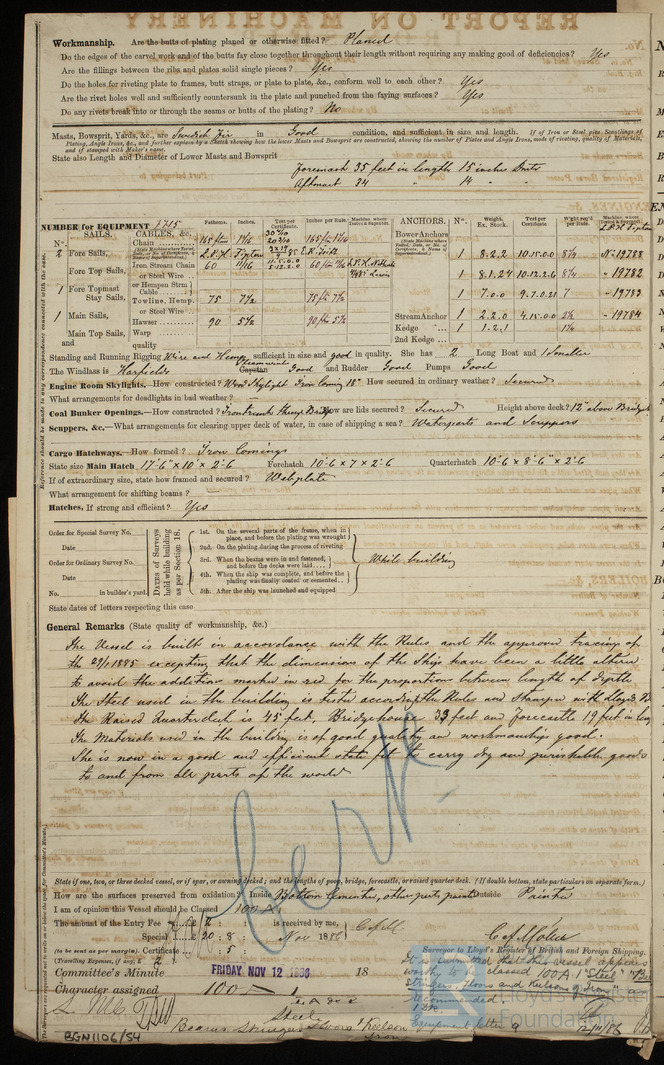 REPORT ON MACHINERY
Workmanship. Are the butts of plating planed or otherwise fitted? Planed
Do the edges of the carvel work and of the butts fay close together throughout their length without requiring any making good of deficiencies? Yes
Are the fillings between the ribs and plates solid single pieces? Yes
Do the holes for riveting plate to frames, butt straps, or plate to plate, &c., conform well to each other? Yes
Are the rivet holes well and sufficiently countersunk in the plate and punched from the faying surfaces? Yes
Do any rivets break into or through the seams or butts of the plating? No
Masts, Bowsprit, Yards, &c., are Swedish Fir in Good condition, and sufficient in size and length. If of Iron or Steel give Scantlings of
Plating, Angle Irons, &c., and further explain by a Sketch showing how the lower Masts and Bowsprit are constructed, showing the number of Plates and Angle Irons, mode of riveting, quality of Materials,
and if stamped with Maker's name.
State also Length and Diameter of Lower Masts and Bowsprit
Foremast 35 feet in length 15 inches
Aftmast 34 " 14 "
NUMBER for EQUIPMENT 1715
SAILS. CABLES, &c. Fathoms. Inches. Test per Certificate. Inches per Rule. ANCHORS. No. Weight. Ex. Stock. Test per Certificate
No. Chain 165 1 1/16 165 1 1/16 Bower Anchors
2 Fore Sails, 1 8.2.2 10.15.0.0 8½ No 19788
Iron Stream Chain 60 11/16
Fore Top Sails, or Steel Wire 1 8.1.24 10.12.2.6 8¼ - 19782
or Hempen Strm Cable
1 Fore Topmast Stay Sails, Towline, Hemp. 75 7½ 75 7½ 1 7.0.0 9.7.0.21 7 - 19783
or Steel Wire
1 Main Sails, Hawser 90 5½ 90 5½ Stream Anchor 1 2.2.0 4.15.0.0 2½ - 19784
Main Top Sails, Warp Kedge 1 1.2.1 1¼
and quality 2nd Kedge
Standing and Running Rigging Wire and Hemp sufficient in size and good in quality. She has 2 Long Boat and 1 Smaller
The Windlass is Harfields Capstan Good and Rudder Good Pumps Good
Engine Room Skylights.—How constructed? Wood Skylight Iron Coming 18" How secured in ordinary weather? Secured
What arrangements for deadlights in bad weather?
Coal Bunker Openings.—How constructed? Iron How are lids secured? Secured Height above deck? 12" above Bridge
Scuppers, &c.—What arrangements for clearing upper deck of water, in case of shipping a sea? Waterports and Scuppers
Cargo Hatchways.—How formed? Iron Comings
State size Main Hatch 17'6" x 10' x 2'6 Forehatch 10'6 x 7 x 2'6 Quarterhatch 10'6 x 8'6" x 2'6
If of extraordinary size, state how framed and secured? Webplate
What arrangement for shifting beams?
Hatches, If strong and efficient? Yes
Order for Special Survey No.
Date
Order for Ordinary Survey No.
Date
No. in builder's yard.
DATES of Surveys held while building as per Section 18.
1st. On the several parts of the frame, when in place, and before the plating was wrought
2nd. On the plating during the process of riveting
3rd. When the beams were in and fastened, and before the decks were laid
4th. When the ship was complete, and before the plating was finally coated or cemented
5th. After the ship was launched and equipped
While building
State dates of letters respecting this case
General Remarks (State quality of workmanship, &c.)
The Vessel is built in accordance with the Rules and the approved tracing of
the 29/1 1885 excepting that the dimensions of the Ship have been a little altered
to avoid the addition marked in red for the proportions between length of depth
The Steel used in the building is tested according the Rules and Stamped with Lloyds
The Raised Quarterdeck is 45 feet, Bridgehouse 33 feet and forecastle 19 feet in long
The Materials used in the building is of good quality and workmanship good.
She is now in a good and efficient state fit to carry dry and perishable goods
to and from all parts of the world
State if one, two, or three decked vessel, or if spar, or awning decked; and the lengths of poop, bridge, forecastle, or raised quarter deck. (If double bottom, state particulars on separate form.)
How are the surfaces preserved from oxidation? Inside Bottom Cemented, other parts painted Outside Painted
I am of opinion this Vessel should be Classed 100 A
The amount of the Entry Fee £ 2 : : is received by me,
Special £ 20 : 8 : Nov 1886
(to be sent as per margin). Certificate : 5
(Travelling Expenses, if any, £ 2
Surveyor to Lloyd's Register of British and Foreign Shipping.
Committee's Minute FRIDAY NOV 12 1886 18
Character assigned 100 A 1
Steel
It is submitted that this vessel appears
worthy to be classed 100A1 "Steel"
Stringers, floors and Keelson of Iron" as
recommended
Equipment letter g
12/11/86
Beams Stringers Floors & Keelson Iron
BGN1106/54
Lloyd's Register
Foundation